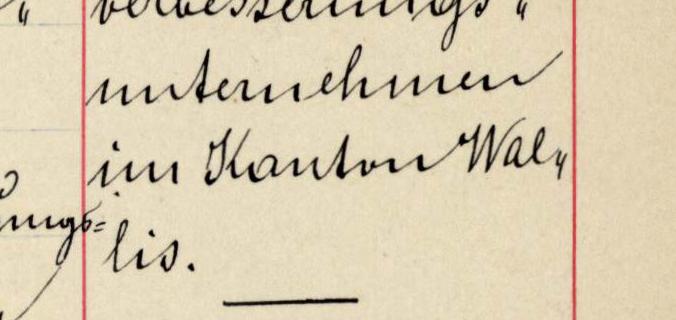 verbesserungs„
unternehmen
im Kanton Wal„
lis.
ungs=